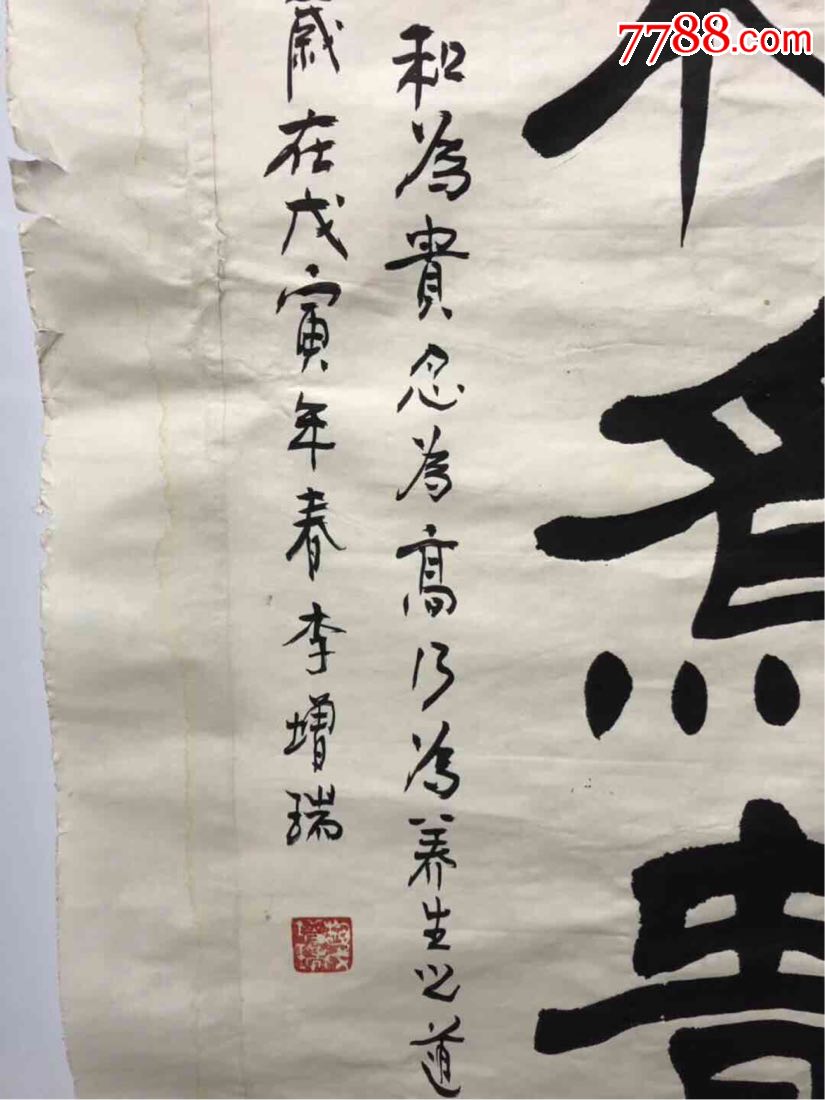 7788.com
和為貴
和為貴忍為高乃為養生之道
歲在戊寅年春李增瑞